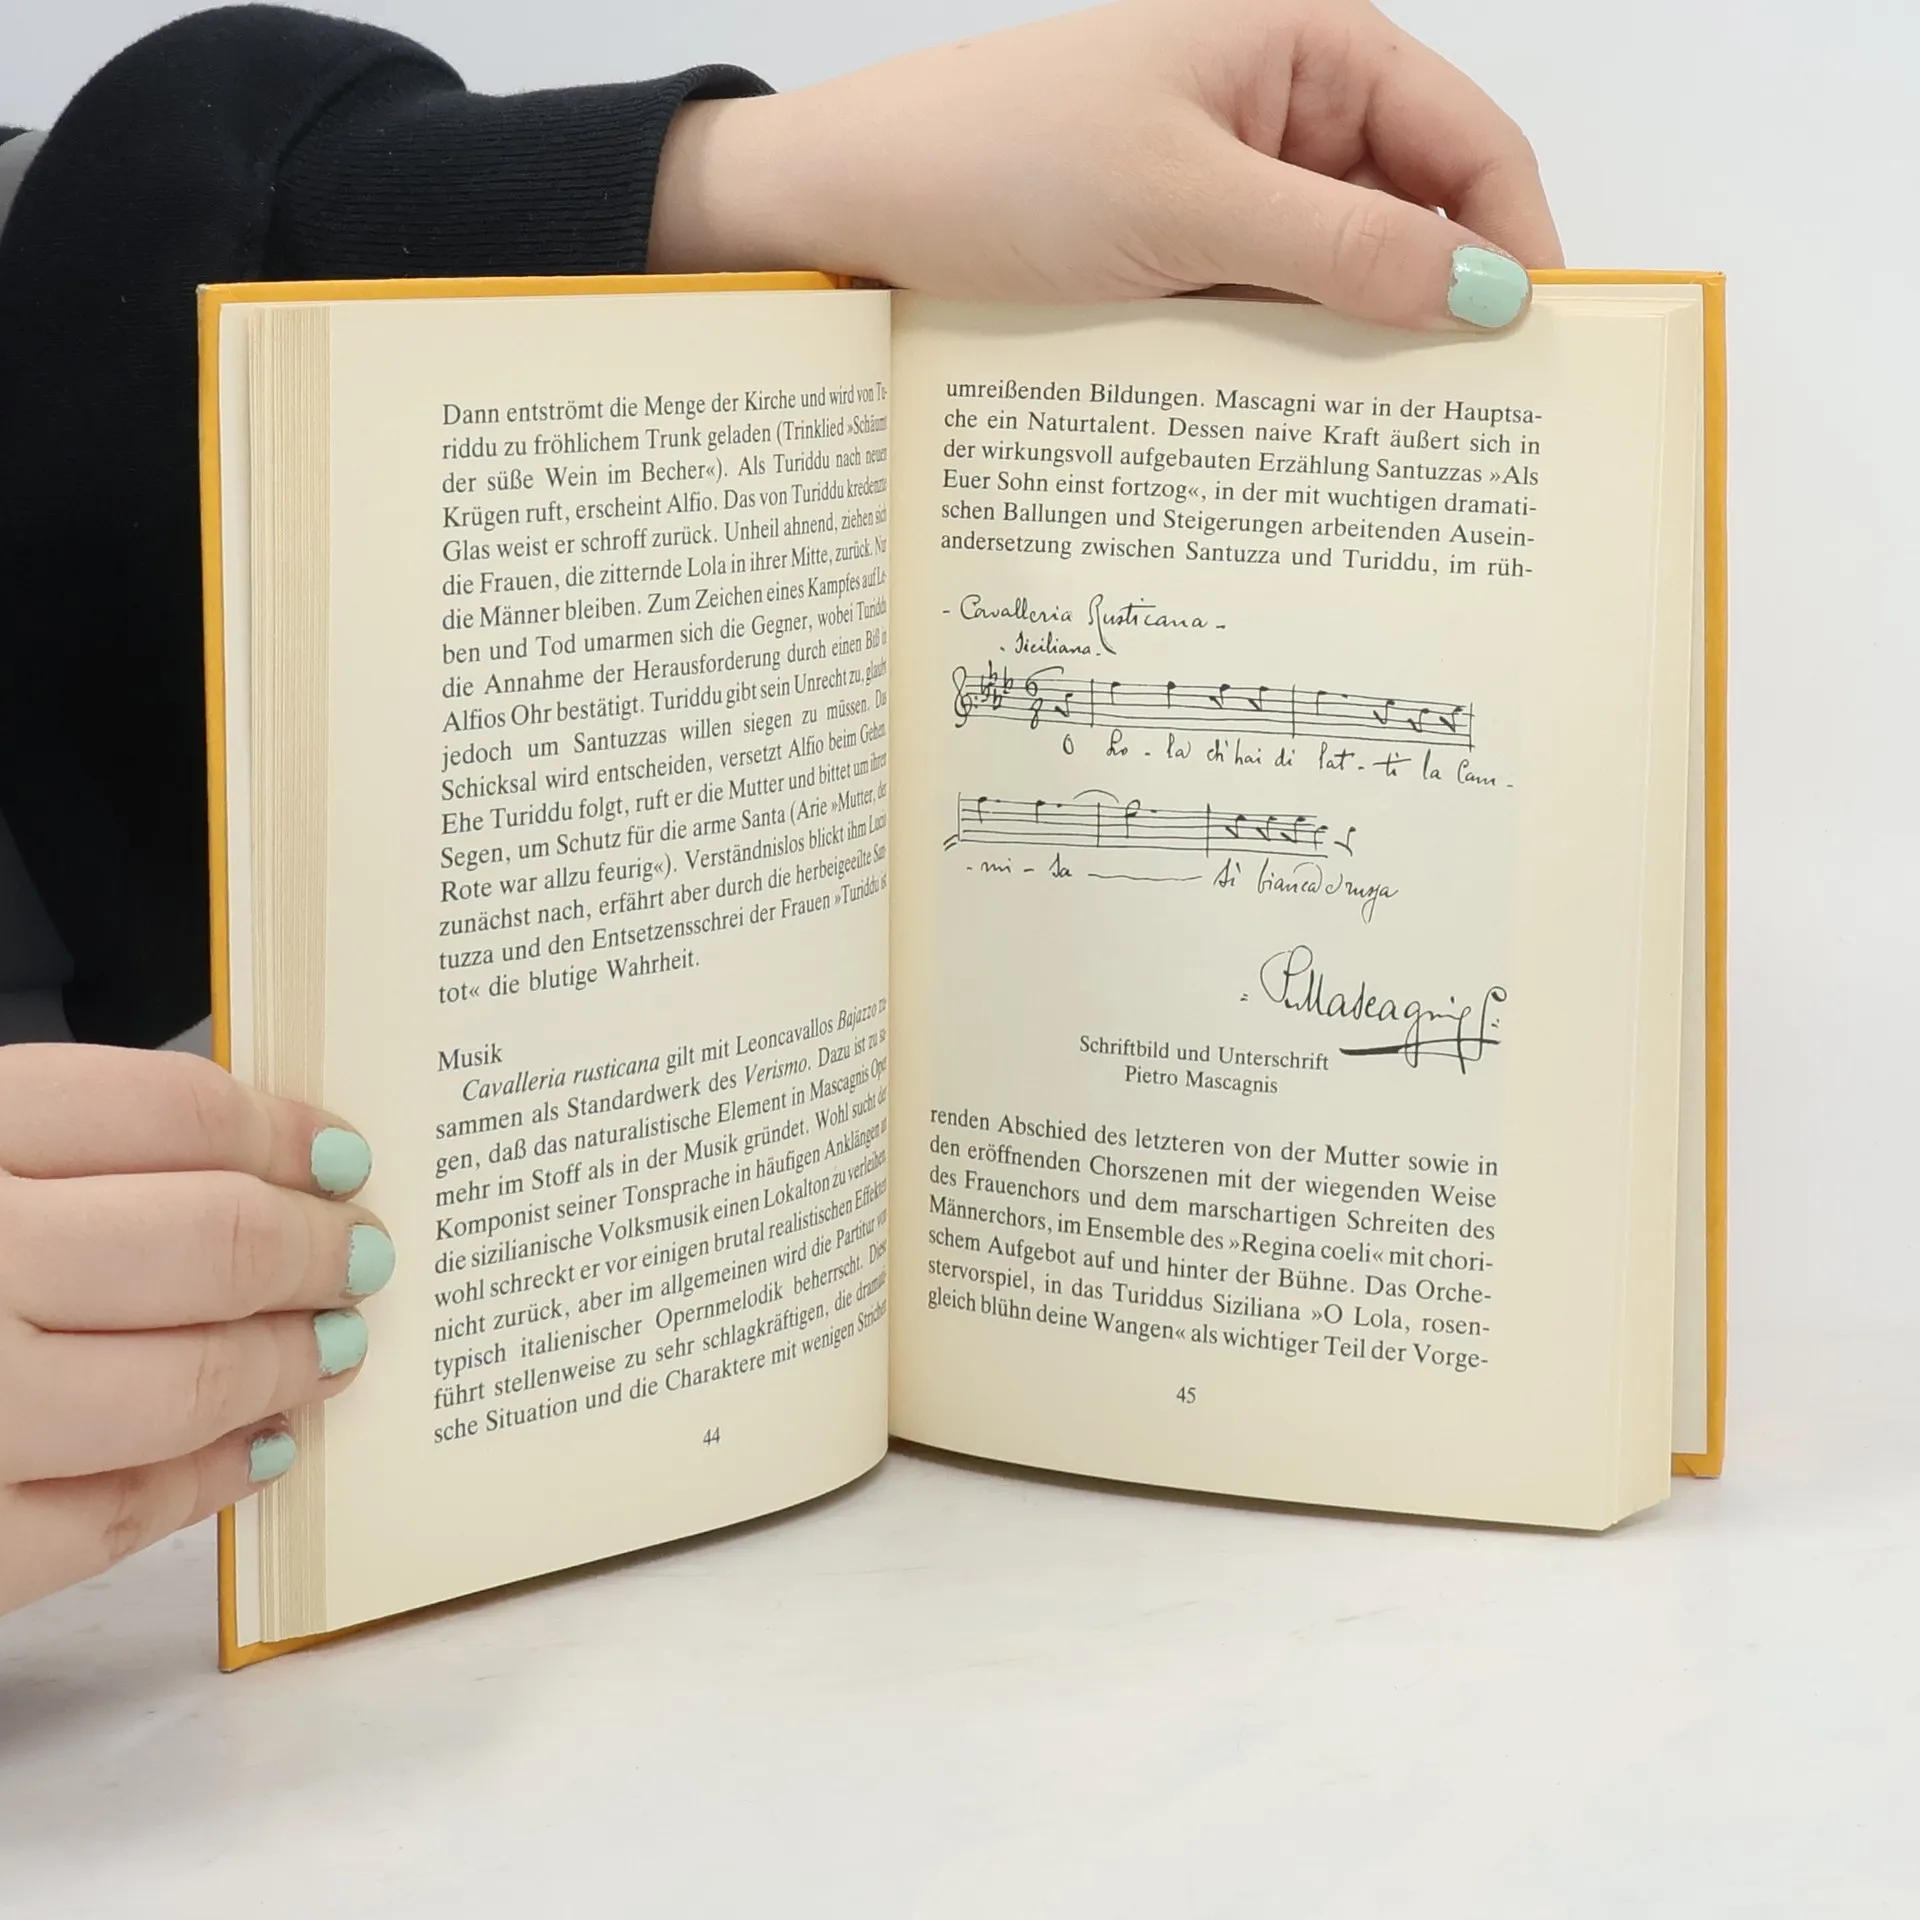 Dann entströmt die Menge der Kirche und wird von Tu-
riddu zu fröhlichem Trunk geladen (Trinklied »Schäumt
der süße Wein im Becher«). Als Turiddu nach neuen
Krügen ruft, erscheint Alfio. Das von Turiddu kredenzte
Glas weist er schroff zurück. Unheil ahnend, ziehen sich
die Frauen, die zitternde Lola in ihrer Mitte, zurück. Nur
die Männer bleiben. Zum Zeichen eines Kampfes auf Le-
ben und Tod umarmen sich die Gegner, wobei Turiddu
die Annahme der Herausforderung durch einen Biß in
Alfios Ohr bestätigt. Turiddu gibt sein Unrecht zu, glaubt
jedoch um Santuzzas willen siegen zu müssen. Das
Schicksal wird entscheiden, versetzt Alfio beim Gehen.
Ehe Turiddu folgt, ruft er die Mutter und bittet um ihren
Segen, um Schutz für die arme Santa (Arie »Mutter, der
Rote war allzu feurig«). Verständnislos blickt ihm Lucia
zunächst nach, erfährt aber durch die herbeigeeilte San-
tuzza und den Entsetzensschrei der Frauen »Turiddu ist
tot« die blutige Wahrheit.
Musik
Cavalleria rusticana gilt mit Leoncavallos Bajazzo zu-
sammen als Standardwerk des Verismo. Dazu ist zu sa-
gen, daß das naturalistische Element in Mascagnis Oper
mehr im Stoff als in der Musik gründet. Wohl sucht der
Komponist seiner Tonsprache in häufigen Anklängen an
die sizilianische Volksmusik einen Lokalton zu verleihen,
wohl schreckt er vor einigen brutal realistischen Effekten
nicht zurück, aber im allgemeinen wird die Partitur von
typisch italienischer Opernmelodik beherrscht. Diese
führt stellenweise zu sehr schlagkräftigen, die dramati-
sche Situation und die Charaktere mit wenigen Strichen
44
umreißenden Bildungen. Mascagni war in der Hauptsa-
che ein Naturtalent. Dessen naive Kraft äußert sich in
der wirkungsvoll aufgebauten Erzählung Santuzzas »Als
Euer Sohn einst fortzog«, in der mit wuchtigen dramati-
schen Ballungen und Steigerungen arbeitenden Ausein-
andersetzung zwischen Santuzza und Turiddu, im rüh-
- Cavalleria Rusticana -
- Siciliana -
6
8
O Lo - la ch'hai di lat - ti la Cam -
- mi - sa si bianca e russa
P. Mascagni
Schriftbild und Unterschrift
Pietro Mascagnis
renden Abschied des letzteren von der Mutter sowie in
den eröffnenden Chorszenen mit der wiegenden Weise
des Frauenchors und dem marschartigen Schreiten des
Männerchors, im Ensemble des »Regina coeli« mit chori-
schem Aufgebot auf und hinter der Bühne. Das Orche-
stervorspiel, in das Turiddus Siziliana »O Lola, rosen-
gleich blühn deine Wangen« als wichtiger Teil der Vorge-
45